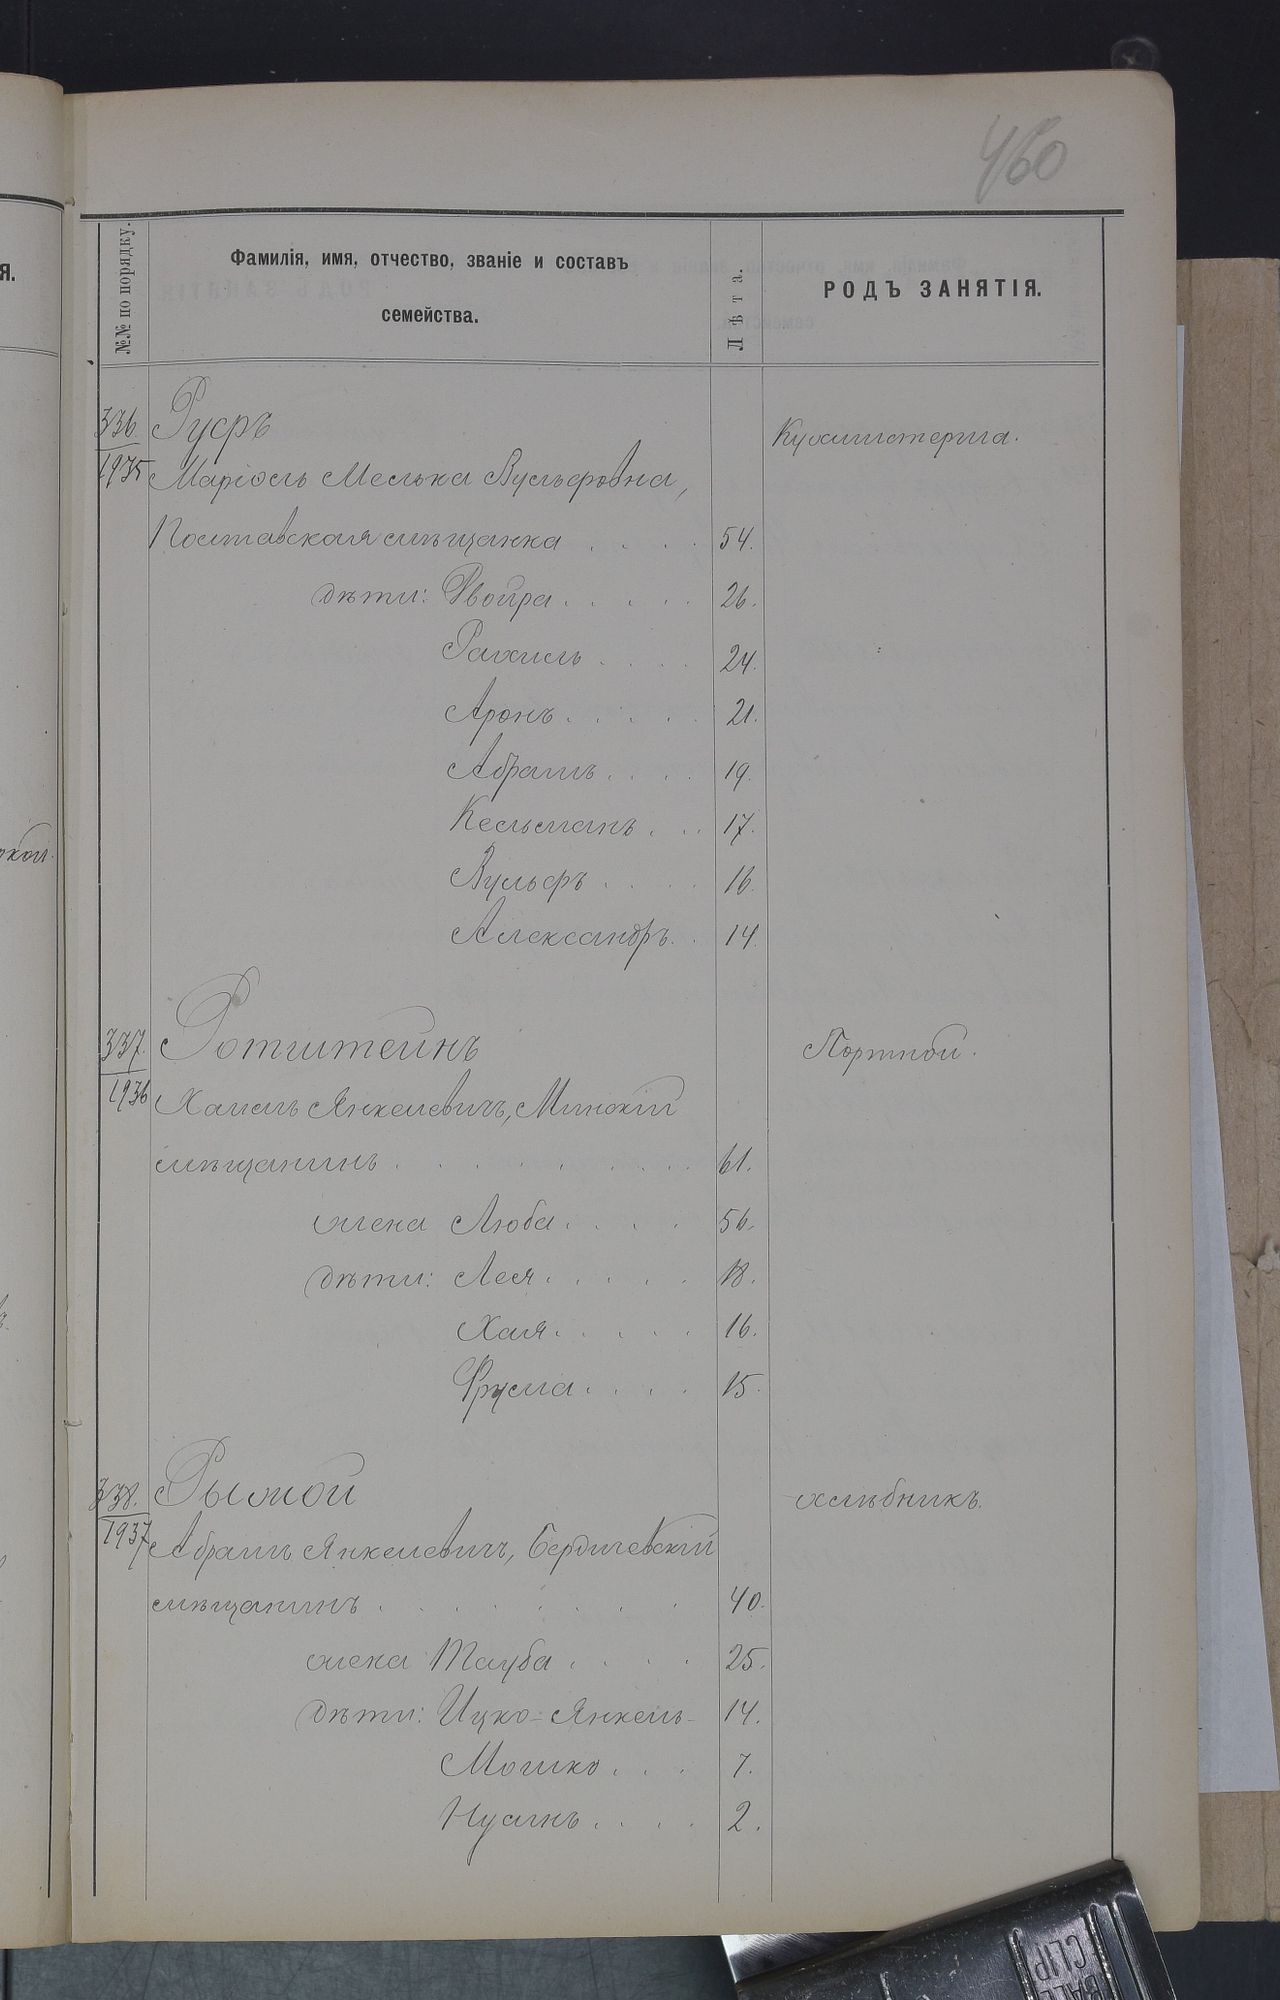 460
№№ по порядку.
Фамилія, имя, отчество, званіе и составъ
семейства.
Лѣта.
РОДЪ ЗАНЯТІЯ.
336.
1935
Руфъ
Кухмистерша.
Маріомъ Мелька Вульфовна,
Полтавская мѣщанка . . . . 54.
дѣти: Двойра . . . . . 26.
Рахиль . . . . 24.
Аронъ . . . . . 21.
Абрамъ . . . . 19.
Кельманъ . . . 17.
Вульфъ . . . . 16.
Александръ . . 14.
337.
1936
Ротштейнъ
Портной.
Хаимъ Янкелевичъ, Минскій
мѣщанинъ . . . . . . . . 61.
жена Люба . . . . 56.
дѣти: Лея . . . . . 18.
Хая . . . . . 16.
Фрума . . . . 15.
338.
1937
Рыжой
хлѣбникъ.
Абрамъ Янкелевичъ, Бердичевскій
мѣщанинъ . . . . . . . . 40.
жена Тауба . . . . 25.
дѣти: Ицко-Янкель 14.
Мошко . . . 7.
2.
я.
BALL
CLIP